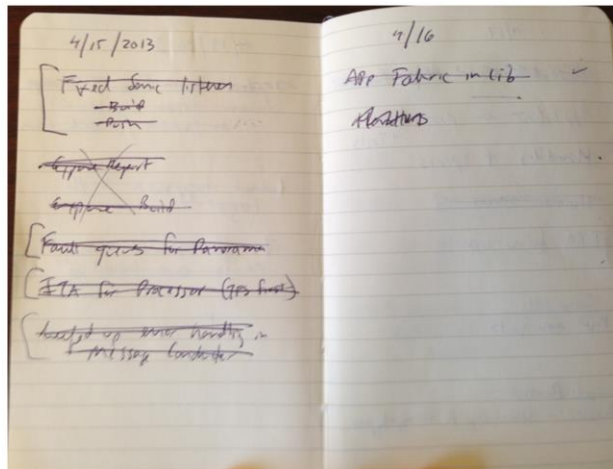 4/15/2013
Fixed Sonic listener
Build
Push
Expense Report
Expense Build
Fault queues for Panorama
ETA for Processor (TFS first)
beefed up error handling in
Message Conductor
4/16
App Fabric in Lib